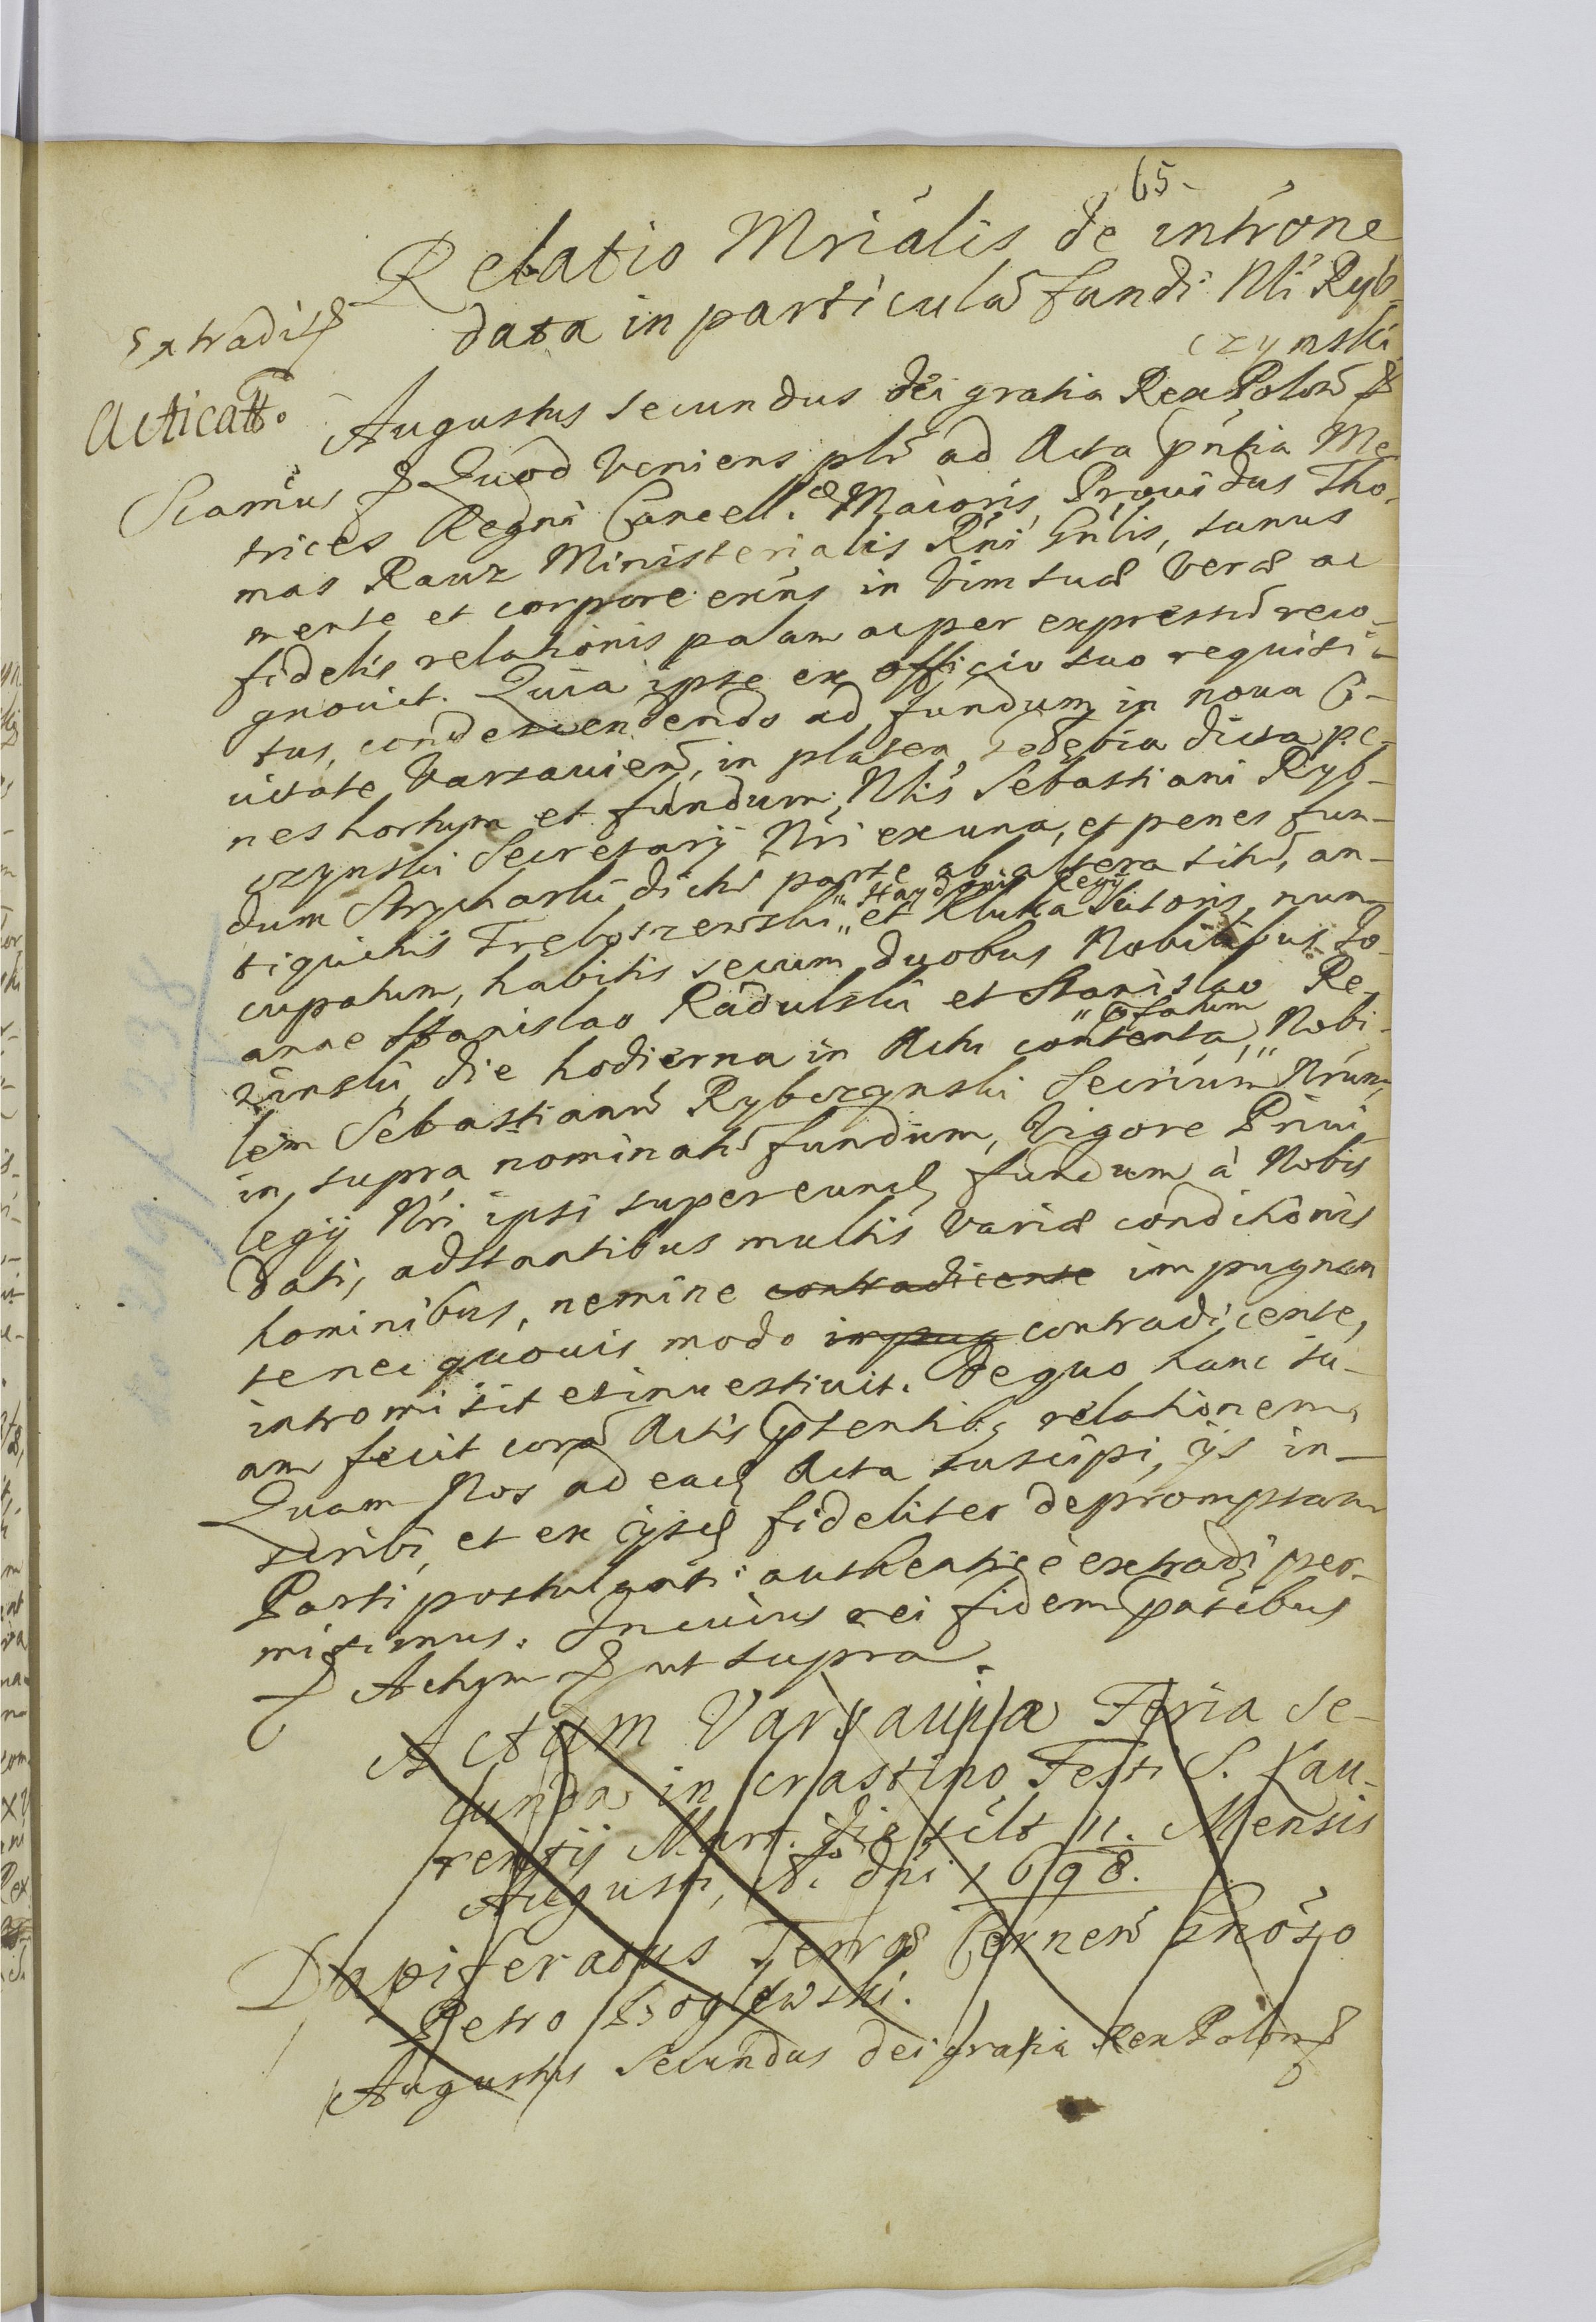 65.
Relatio Mriālis de intrōne
data in particulā fundi Nli Ryb-
czynski
Extradit
Acticatto
Augustus Secundus Dei gratia Rex Polon̄ &
Siamus & Quod veniens plr̄ ad Acta pn̄tia Me-
trices Regni Cancell. Maioris Prouidus Tho-
mas Rauz Ministerialis Rn̄i Gn̄lis, sanus
mente et corpore exn̄s in Vim suæ veræ ac
fidelis relationis palam ac per expressū reco-
gnouit. Quia ipse ex officio suo requisi-
tus, condescendendo ad fundum in noua Ci-
uitate Varsauien̄, in platea, dicta pe-
nes hortum et fundum Nlis Sebastiani Ryb-
czynski Secretarij Nr̄i ex una, et penes fun-
dum Strycharski dictū parte ab altera sitū, an-
tiquitus Treboszewski „ et Kluka Sutoris, nun-
„ Regij
cupatum, habitis secum duobus Nobilibus Jo-
anne Stanislao Radulski et Stanislao Re-
zinski, die hodierna in Actu contenta, Nobi-
„ pfatum
lem Sebastianū Rybczynski Secrīum Nrum,
in supra nominatū fundum, Vigore Priui-
legij Nr̄i ipsi super eund fundum à Nobis
dati, adstantibus multis variæ conditionis
hominibus, nemine contradicente impugnan
te nec quouis modo impug contradicente,
intromisit et inuestiuit. De quo hanc su-
am fecit corā Actis pn̄tentibq relationem,
Quam Nos ad ead Acta suscipi, ijs in-
scribi, et ex ijsd fideliter depromptam
Parti postulanti authenticè extradi per-
misimus. In cuius rei fidem pn̄tibus
& Actum & ut supra.
Actum Varsauiæ Feria Se-
cunda in crastino Festi S. Lau-
rentij Mart. die scilt 11. Mensis
Augusti, Ao dn̄i 1698.
Dapiferatus Terræ Cernen̄ Gnōso
Petro
Augustus Secundus Dei gratia Rex Polon̄ &